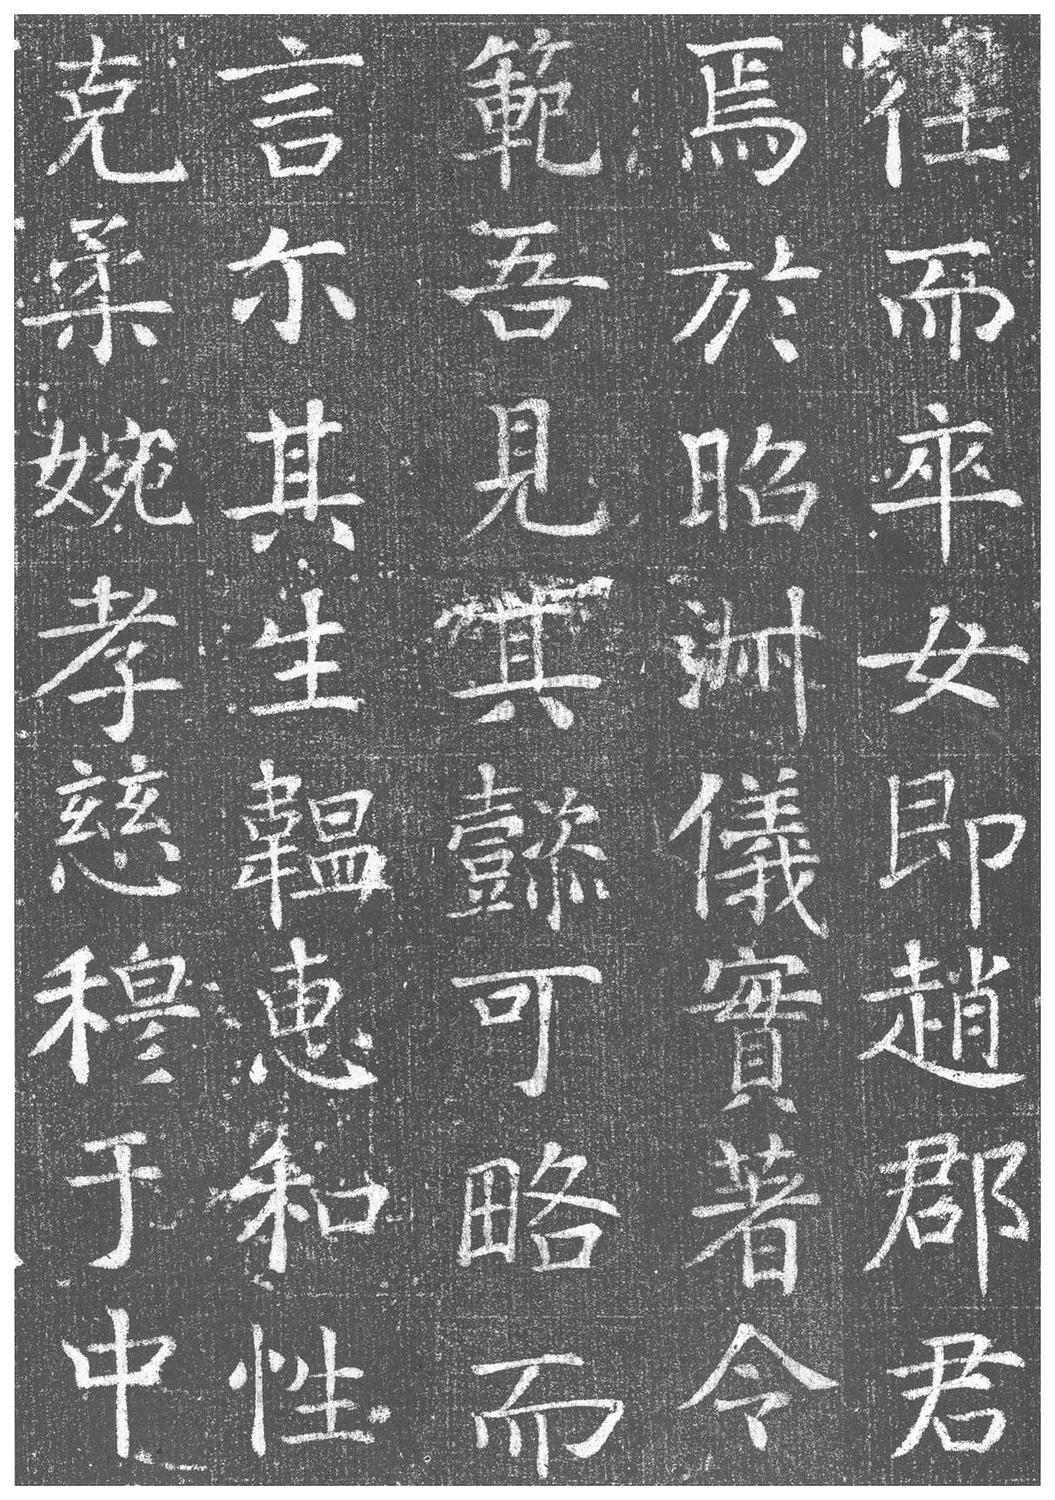 往而卒女即趙郡君
焉於昭淋儀實著令
範吾見其懿可略而
言尔其生韞惠和性
克柔婉孝慈穆于中